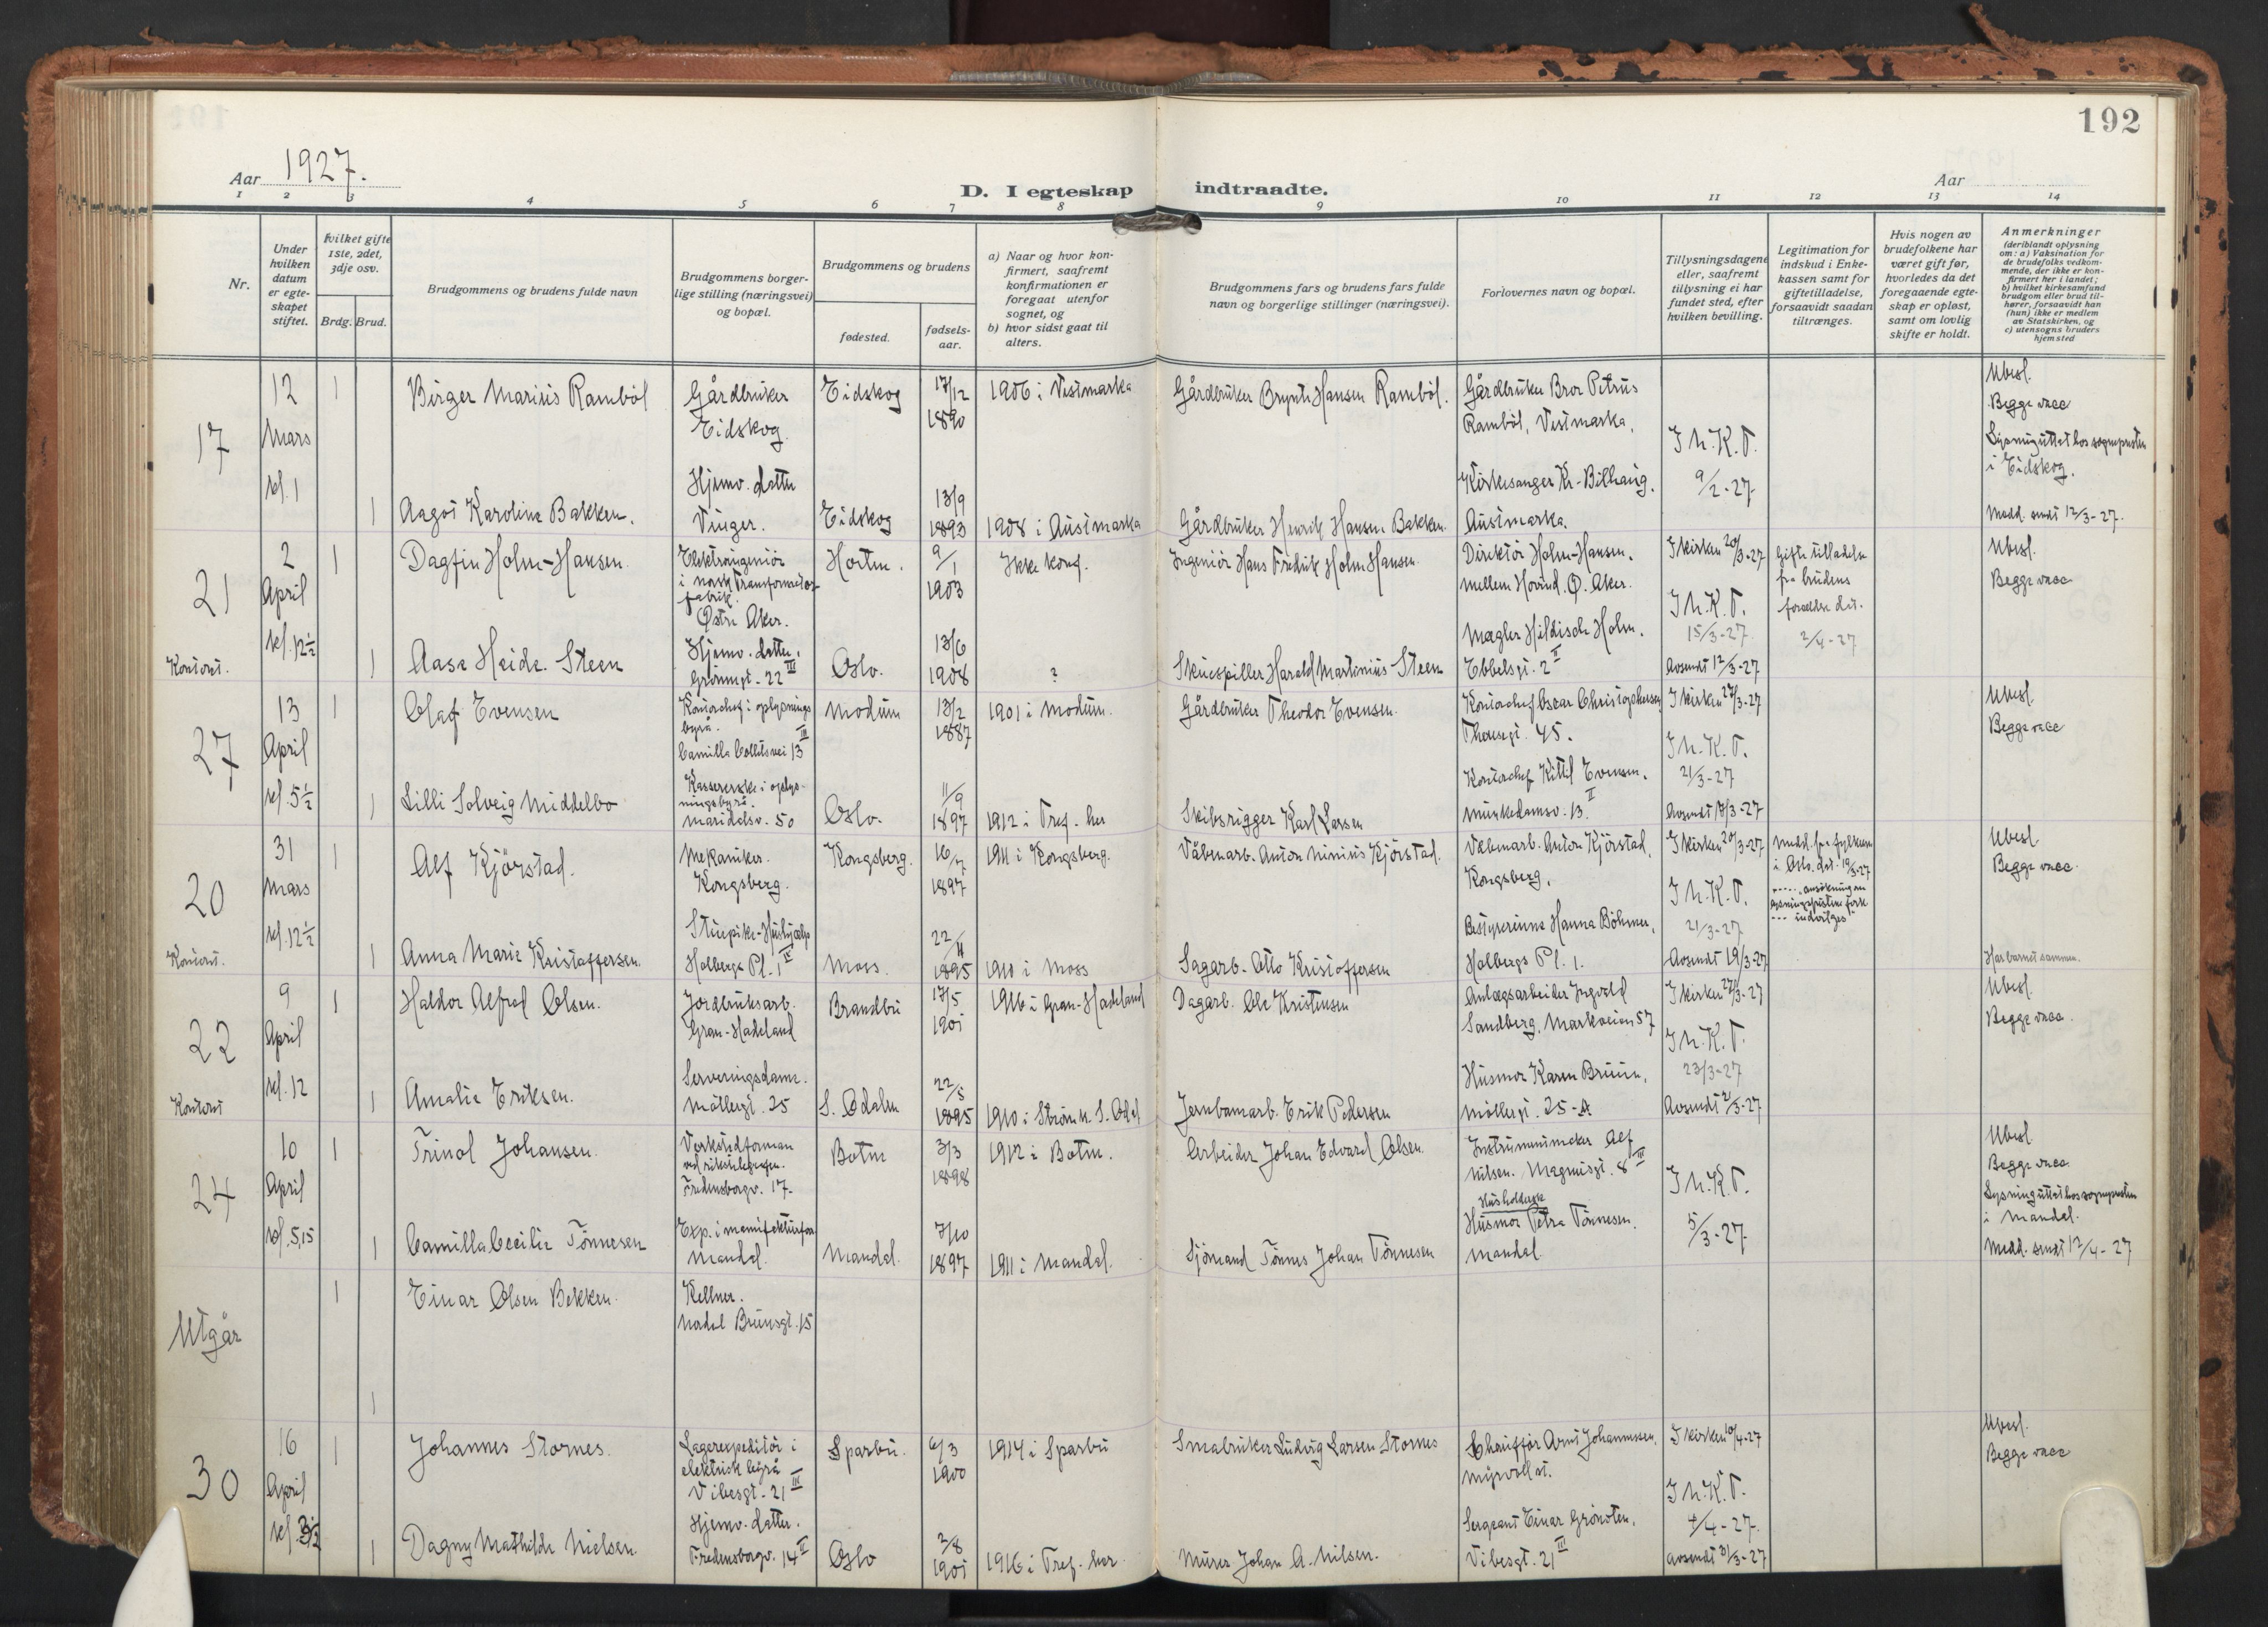 192
Aar 1927.
D. I egteskap indtraadte.
Aar
1 2 3 4 5 6 7 8 9 10 11 12 13 14
Nr.
Under hvilken datum er egteskapet stiftet.
Hvilket gifte 1ste, 2det, 3dje osv.
Brdg. Brud.
Brudgommens og brudens fulde navn
Brudgommens borgerlige stilling (næringsvei) og bopæl.
Brudgommens og brudens
fødested.
fødselsaar.
a) Naar og hvor konfirmert, saafremt konfirmationen er foregaat utenfor sognet, og
b) hvor sidst gaat til alters.
Brudgommens fars og brudens fars fulde navn og borgerlige stillinger (næringsvei).
Forlovernes navn og bopæl.
Tillysningsdagene eller, saafremt tillysning ei har fundet sted, efter hvilken bevilling.
Legitimation for indskud i Enkekassen samt for giftetilladelse, forsaavidt saadan tiltrænges.
Hvis nogen av brudefolkene har været gift før, hvorledes da det foregaaende egteskap er opløst, samt om lovlig skifte er holdt.
Anmerkninger
(deriblandt oplysning om: a) Vaksination for de brudefolks vedkommende, der ikke er konfirmert her i landet; b) hvilket kirkesamfund brudgom eller brud tilhører, forsaavidt han (hun) ikke er medlem av Statskirken, og c) utensogns bruders hjemsted
17
12 Mars kl. 1
1
Birger Marius Ramböl
Gårdbruker
Eidskog.
Eidskog
17/12 1890
1906 i Vestmarka
Gårdbruker Brynte Hansen Ramböl.
Gårdbruker Bror Petrus
Ramböl, Vestmarka.
I h. K. T.
9/2-27
Ubesl.
Begge vacc
i Eidskog.
1
Aagot Karoline Bakken.
Hjemv. datter
Vinger.
Eidskog
13/9 1893
1908 i Austmarka
Gårdbruker Henrik Hansen Bakken.
Kirkesanger Kr. Bilhaug.
Austmarka.
Medd. sendt 12/3-27.
21
2 April kl. 12½
Kontoret.
1
Dagfin Holm-Hansen
Elektroingeniör
i norsk Transformator-
fabrik.
Østre Aker.
Horten.
9/1 1903
Ikke konf.
Ingeniör Hans Fredrik Holm Hansen.
Direktör Holm-Hansen.
mellem Hovind. Ö. Aker.
I kirken 20/3-27
I h. K. T.
15/3-27
Avsendt 12/3-27
Gifte tilladelse
fra brudens
forældre dat.
2/4-27
Ubesl.
Begge vacc
1
Aase Heide Steen
Hjemv. datter.
Grönnegt. 22 III
Oslo.
13/6 1908
?
Skuespiller Harald Martinius Steen
Mægler Hildisch Holm.
Ebbelsgt. 2 II
27
13 April kl. 5½
1
Olaf Evensen
Kontorchef i oplysnings
byrå.
Camilla Colletsvei 13 III
Modum
13/2 1887
1901 i Modum.
Gårdbruker Theodor Evensen.
Kontorchef Oscar Christophersen
Theresegt. 45.
I kirken 27/3-27
I h. K. T.
21/3-27
Avsendt 18/3-27
Ubesl.
Begge vacc
1
Lilli Solveig Middelbo
Kassererske i oplys-
ningsbyrå.
Maridalsv. 50
Oslo.
11/9 1897
1912 i Tref. her
Skibsrigger Karl Larsen
Kontorchef Kittil Evensen.
Munkedamsv. 13 II
20
31 Mars kl. 12½
Kontoret.
1
Alf Kjörstad.
Mekaniker.
Kongsberg.
Kongsberg.
16/7 1897
1911 i Kongsberg.
Våbenarb. Anton Ninius Kjörstad.
Våbenarb. Anton Kjörstad,
Kongsberg.
I kirken 20/3-27
I h. K. T.
21/3-27
Avsendt 19/3-27
Ubesl.
Begge vacc.
1
Anna Marie Kristoffersen.
Holbergs Pl. 1 IV
Moss.
22/11 1895
1910 i Moss
Sagarb. Otto Kristoffersen
Bestyrerinne Hanna Böhmer,
Holbergs Pl. 1.
Har barnet sammen.
22
9 April kl. 12
Kontoret
1
Haldor Alfred Olsen.
Jordbruksarb.
Gran-Hadeland
Brandbu
17/5 1901
1916 i Gran-Hadeland
Dagarb. Ole Kristensen
Anlægsarbeider Ingvald
Sandberg, Markveien 57
I kirken 27/3-27
I h. K. T.
23/3-27
Avsendt 21/3-27
Ubesl.
Begge vacc.
1
Amalie Eriksen.
Serveringsdame.
Möllergt. 25
S. Odalen
22/5 1895
1910 i Ström k. S. Odal
Jernbanearb. Erik Pedersen
Husmor Karen Bruun,
Möllergt. 25-A
24
10 April kl. 5,15
1
Trinol Johansen.
Verkstedforman
ved rikstelegrafen.
Fredensborgv. 17.
Botne
3/3 1898
1912 i Botne.
Arbeider Johan Edvard Olsen.
Instrumentmaker Alf
Nilsen. Magnusgt. 8 III
I h. K. T.
5/3-27
Ubesl
Begge vacc
i Mandal.
1
Camilla Cecilie Tönnesen
Mandal.
Mandal.
7/10 1897
1911 i Mandal.
Sjömand Tönnes Johan Tönnesen
Husholderske
Husmor Petra Tönnesen.
Mandal.
Medd. sendt 12/4-27
Utgår
1
Einar Olsen Bekken.
Kellner.
Nordal Brunsgt. 15
1
30
16 April
1
Johannes Stornes.
Lagerexpeditör i
elektrisk byrå
Vibesgt. 21 III
Sparbu.
6/3 1900
1914 i Sparbu
Småbruker Ludvig Larsen Stornes
Chauffør Arnt Johannessen,
Myrvoll st.
I kirken 10/4-27
I h. K. T.
4/4-27.
Avsendt 31/3-27
Ubesl.
Begge vacc
1
Dagny Mathilde Nielsen.
Hjemv. datter.
Fredensborgv. 14 II
Oslo
2/8 1901
1916 i Tref. her.
Murer Johan A. Nilsen.
Sergeant Einar Grönoten,
Vibesgt. 21 III